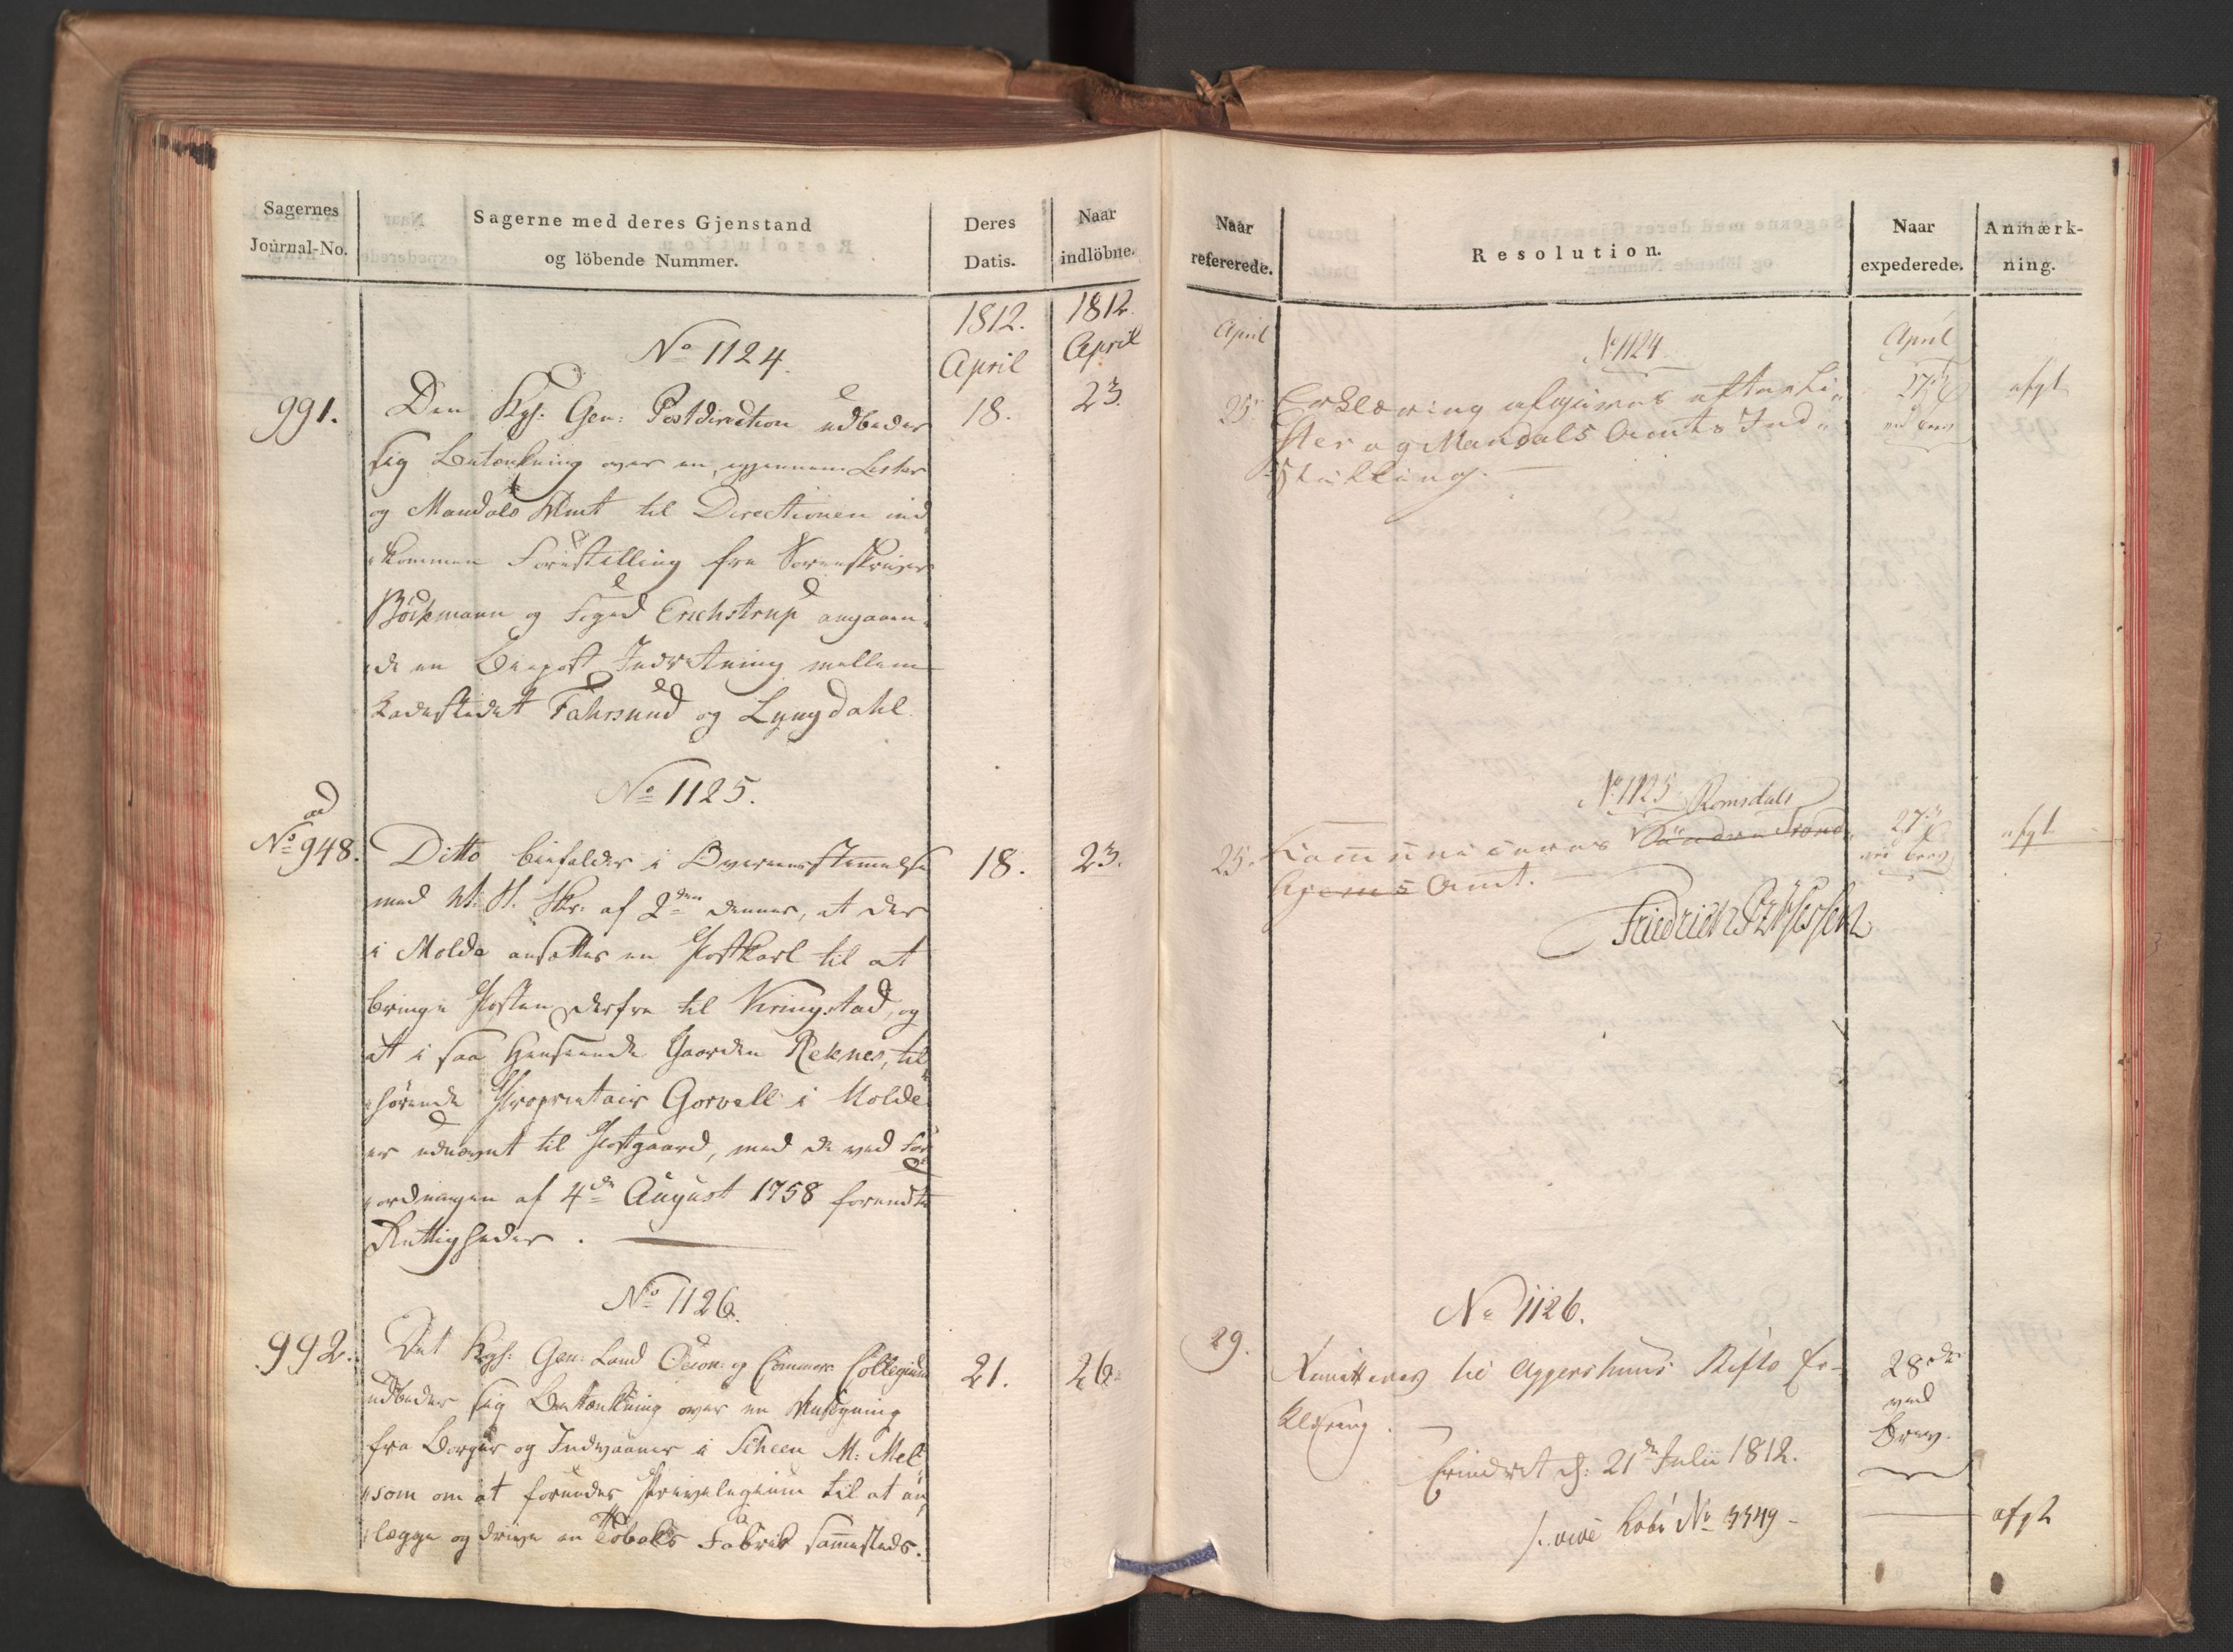 Sagernes
Journal-No.
Sagerne med deres Gjenstand
og löbende Nummer.
Deres
Datis.
Naar
indlöbne.
1812.
April
1812.
April
No 1124.
991.
18.
23.
Den Kgl: Gen: Postdirection udbeder
sig Betænkning over en, igjennem Lister
og Mandals Amt til Directionen ind
kommen Forestilling fra Sorenskriver
Böckmann og Foged Erichstrup angaaen
de en Biepost Indretning mellem
Ladestedet Fahrsund og Lyngdahl.
No 1125.
ad
No 948.
18.
23.
Ditto bifalder i Overeensstemmelse
med St. Skr. af 2den dennes, at der
i Molde ansættes en Postkarl til at
bringe Posten derfra til Kringstad, og
at i saa Henseende Gaarden Reknes, til
hörende Proprietair Gorvell i Molde
er udnævnt til Postgaard, med de ved For
ordningen af 4de August 1758 forundte
Rettigheder.
No 1126.
992.
21.
26.
Det Kgl: Gen: Land Oecon: og Commerce Collegium
udbeder sig Betænkning over en Ansögning
fra Borger og Indvaaner i Scheen M: Mel
som om at forundes Privelegium til at an
lægge og drive en Tobaks Fabrik sammesteds.
Naar
refererede.
Resolution.
Naar
expederede.
Anmærk-
ning.
April
April
No 1124
25.
Erklæring afgives efter Li
ster og Mandals Amts Ind
stilling.
27
ved Brev
afgl
No 1125.
Romsdals
25.
Communiceres Söndre Trond
hjems Amt.
27
ved Brev
afgl
No 1126.
29.
Remitteres til Aggershuus Stifts Er-
klæring.
28de
ved
Brev.
Erindret d: 21de Julii 1812.
No 3549
afgl